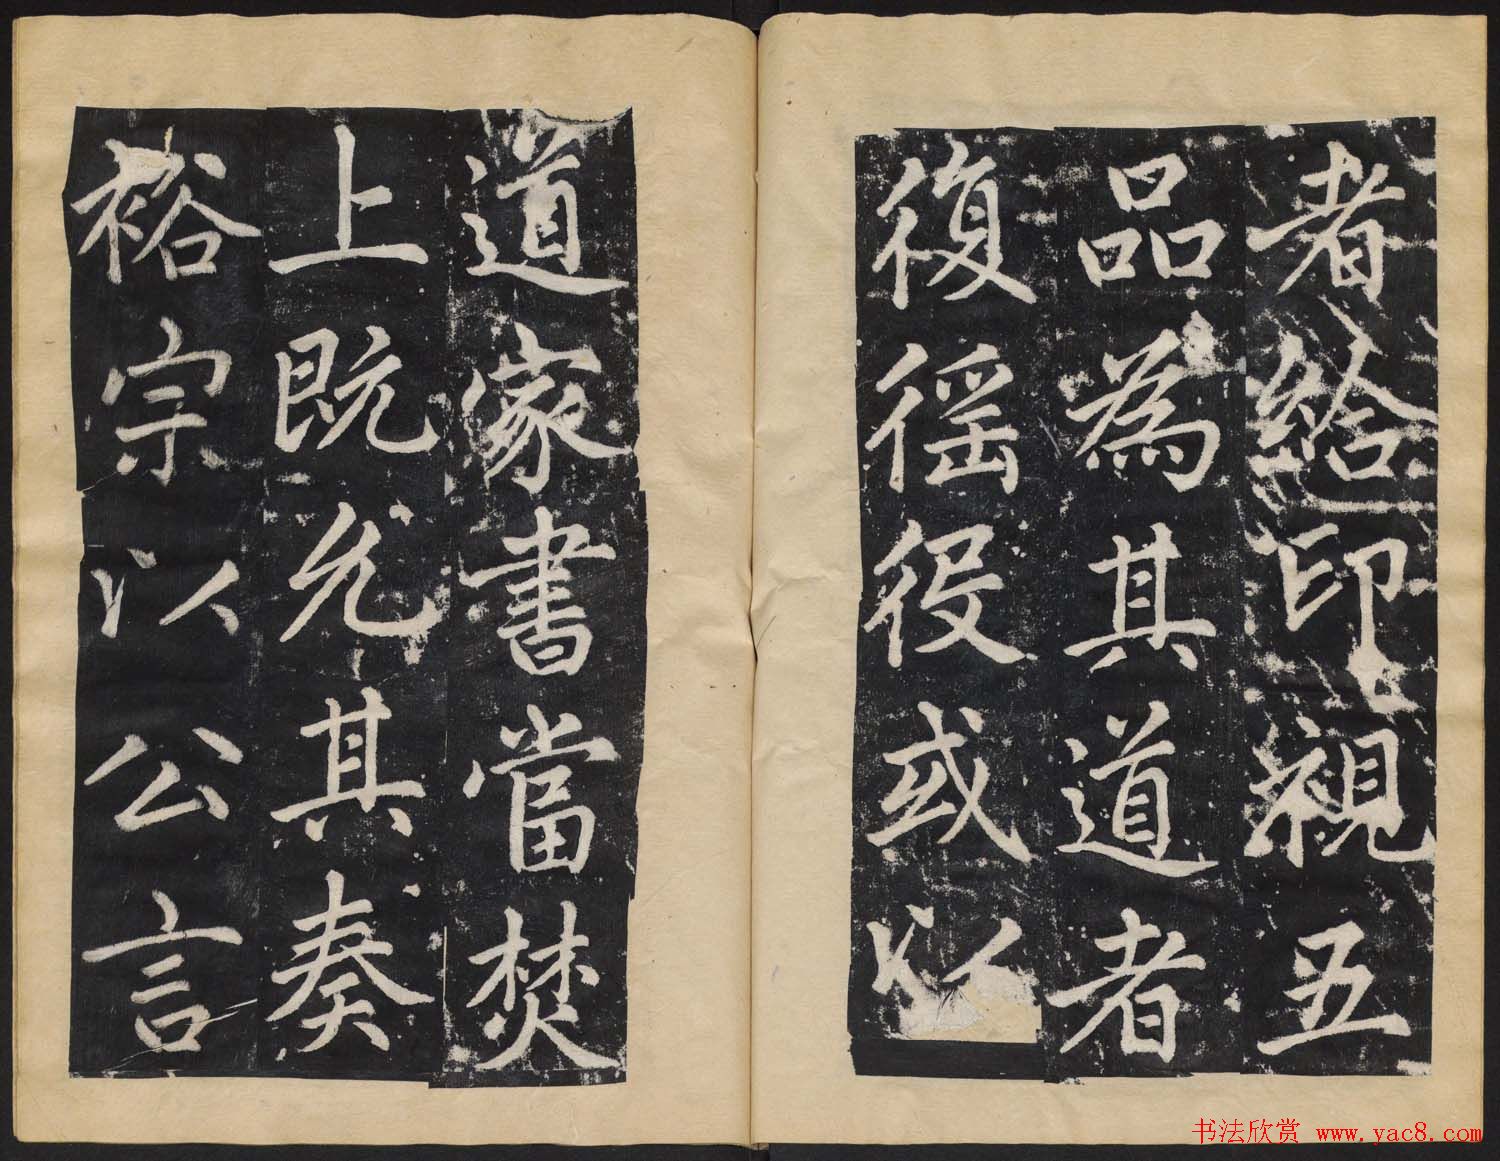 者给印視五
品為其道者
復徭役或以
道家書當焚
上既允其奏
裕宗以公言
书法欣赏 www.yac8.com